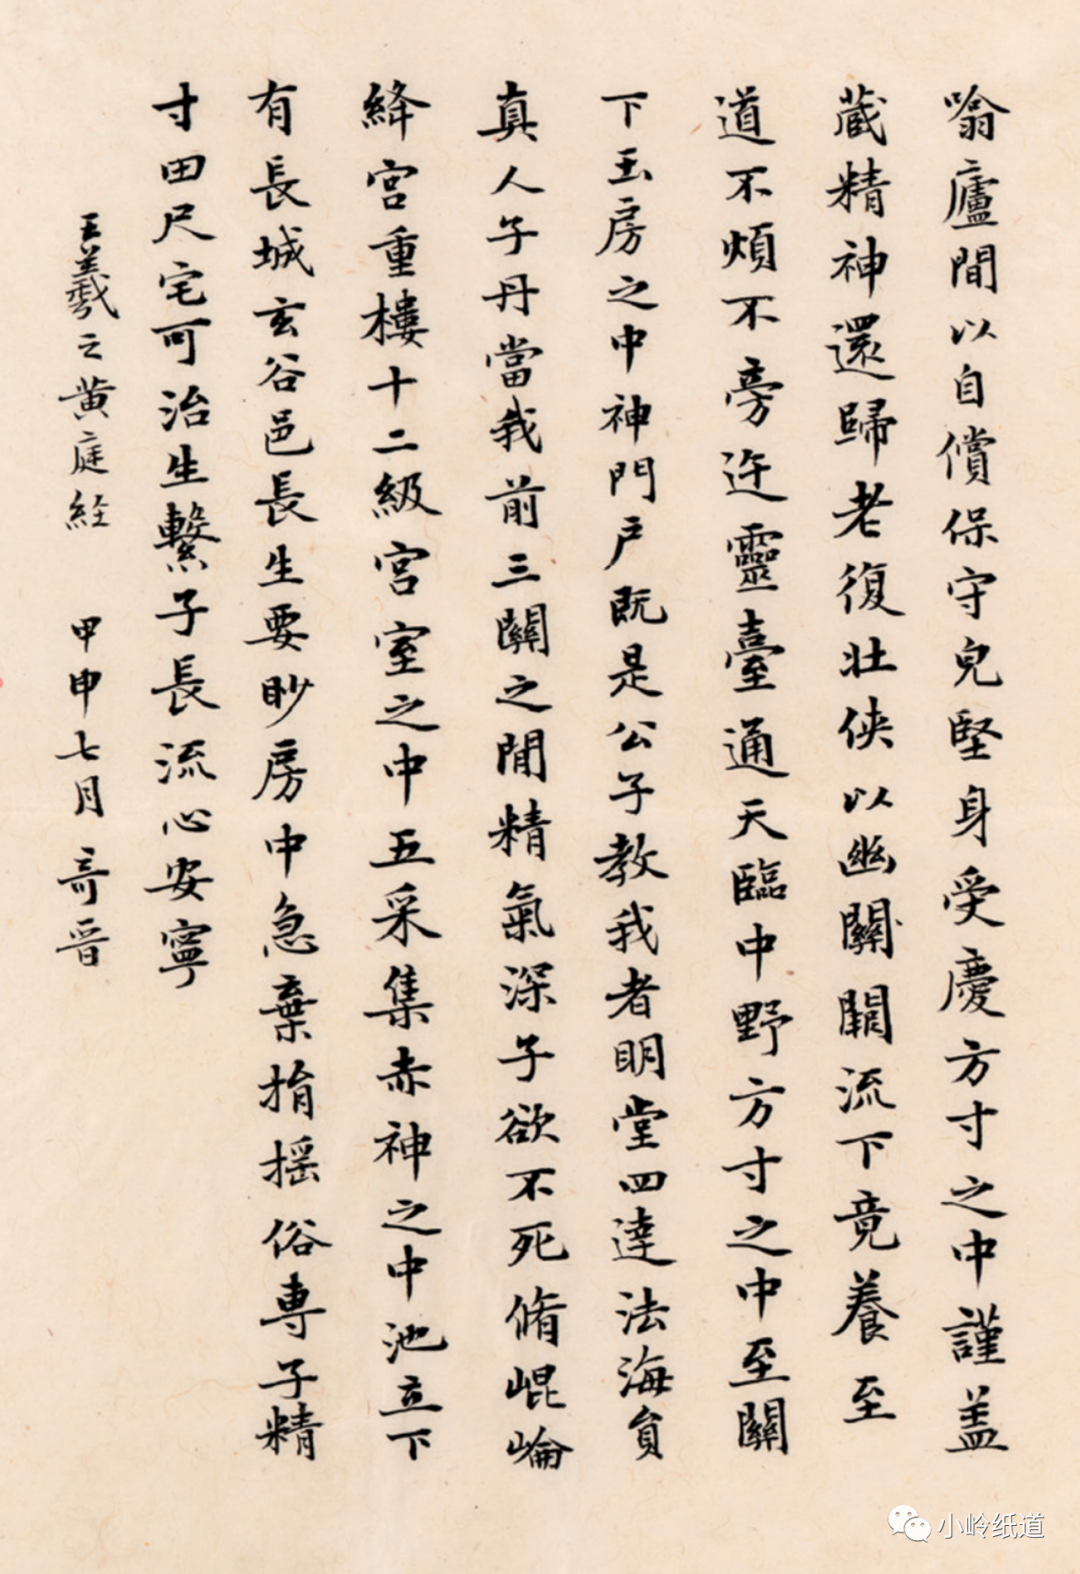 噏廬間以自償保守皃堅身受慶方寸之中謹盖
蔵精神還歸老復壯俠以幽關關流下竟養至
道不煩不旁迕靈臺通天臨中野方寸之中至關
下玉房之中神門戶既是公子教我者明堂四達法海員
真人子丹當我前三關之間精氣深子欲不死脩崐崘
絳宮重樓十二級宮室之中五采集赤神之中池立下
有長城玄谷邑長生要眇房中急棄捐搖俗専子精
寸田尺宅可治生繫子長流心安寧
王羲之黄庭経 甲申七月 奇晋
小岭纸道